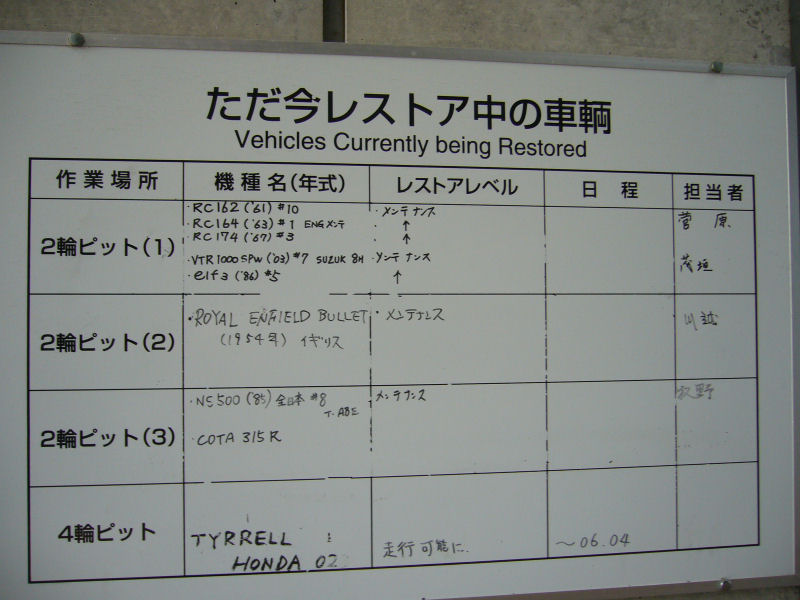 ただ今レストア中の車輌
Vehicles Currently being Restored
作業場所 機種名(年式) レストアレベル 日程 担当者
2輪ピット(1)
・RC162 ('61) #10 ・メンテナンス 菅原
・RC164 ('63) #1 ENGメンテ ・ ↑
・RC174 ('67) #3 ↑
・VTR1000SPW ('03) #7 SUZUK 8H ・メンテナンス 茂垣
・elf3 ('86) #5 ↑
2輪ピット(2)
・ROYAL ENFIELD BULLET ・メンテナンス 川越
(1954年) イギリス
2輪ピット(3)
・NS500 ('85) 全日本 #8 メンテナンス 牧野
T.ABE
・COTA 315R
4輪ピット
TYRRELL 走行可能に. 〜06.04
HONDA 02